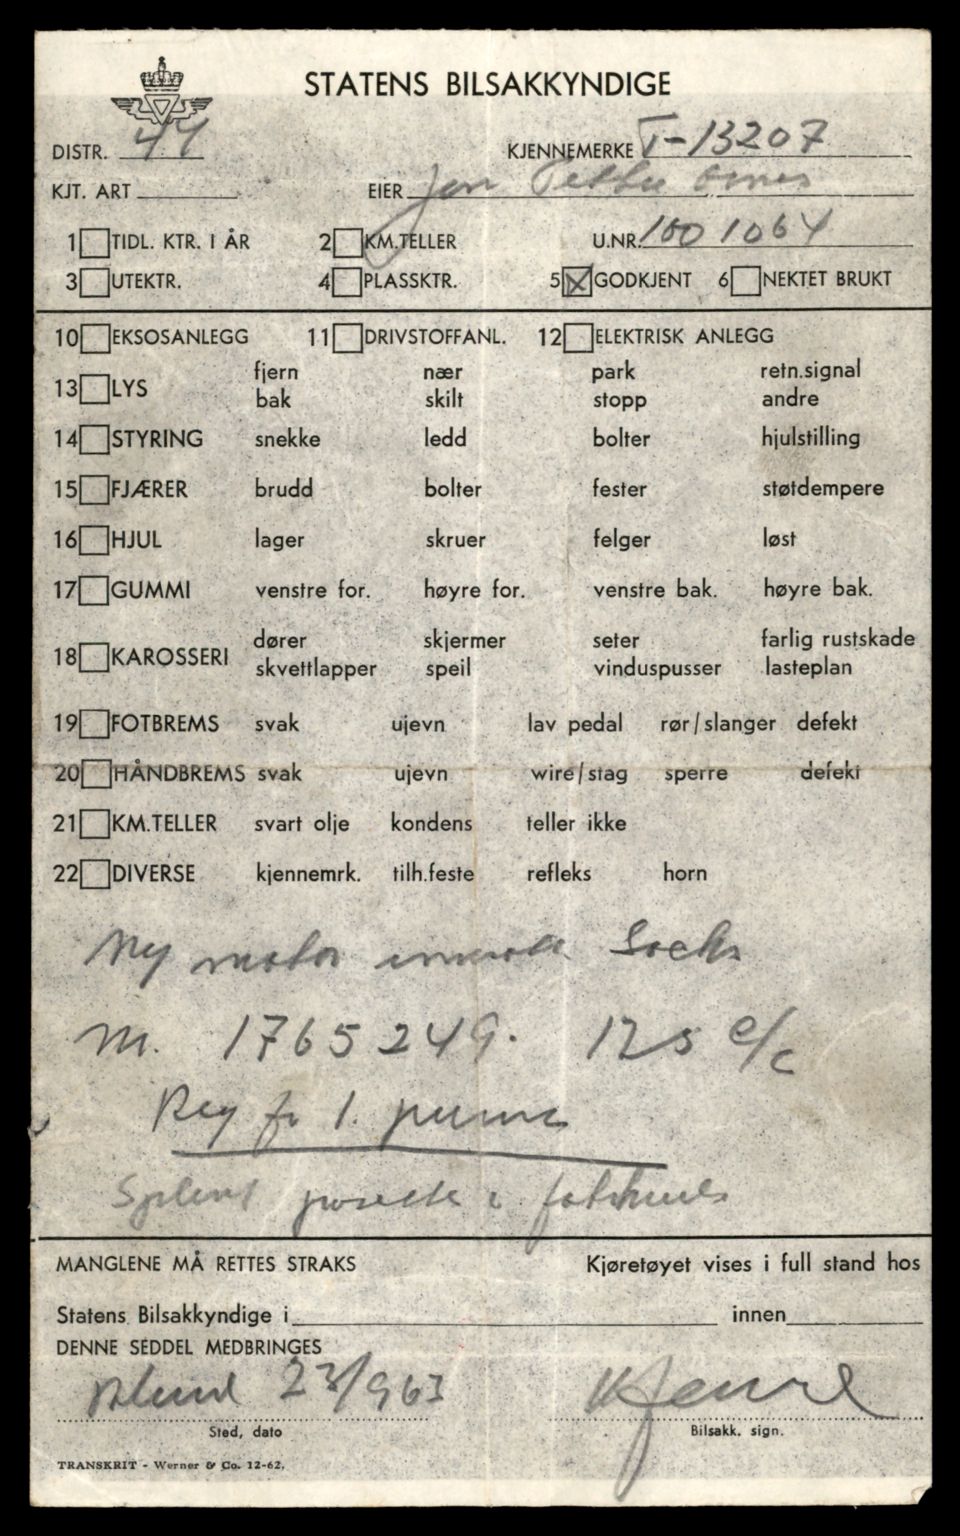 STATENS BILSAKKYNDIGE
DISTR. 44 KJENNEMERKE T-13207
KJT. ART EIER Jon Petter
1 TIDL. KTR. I ÅR 2 KM.TELLER U.NR. 1001064
3 UTEKTR. 4 PLASSKTR. 5 X GODKJENT 6 NEKTET BRUKT
10 EKSOSANLEGG 11 DRIVSTOFFANL. 12 ELEKTRISK ANLEGG
fjern nær park retn.signal
13 LYS
bak skilt stopp andre
14 STYRING snekke ledd bolter hjulstilling
15 FJÆRER brudd bolter fester støtdempere
16 HJUL lager skruer felger løst
17 GUMMI venstre for. høyre for. venstre bak. høyre bak.
dører skjermer seter farlig rustskade
18 KAROSSERI
skvettlapper speil vinduspusser lasteplan
19 FOTBREMS svak ujevn lav pedal rør/slanger defekt
20 HÅNDBREMS svak ujevn wire/stag sperre defekt
21 KM.TELLER svart olje kondens teller ikke
22 DIVERSE kjennemrk. tilh.feste refleks horn
Ny motor Sachs
M. 1765249. 125 c/c
Reg for 1. person
Splint i
MANGLENE MÅ RETTES STRAKS Kjøretøyet vises i full stand hos
Statens Bilsakkyndige i innen
DENNE SEDDEL MEDBRINGES
23/963
Sted, dato Bilsakk. sign.
TRANSKRIT - Werner & Co. 12-62.